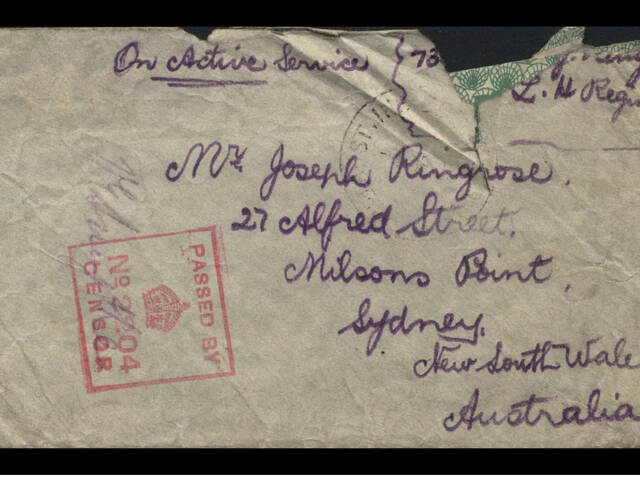 On Active Service
73
L. H Reg
Mr. Joseph Ringrose.
27 Alfred Street.
Milsons Point.
Sydney.
New South Wale
Australia
PASSED BY
CENSOR